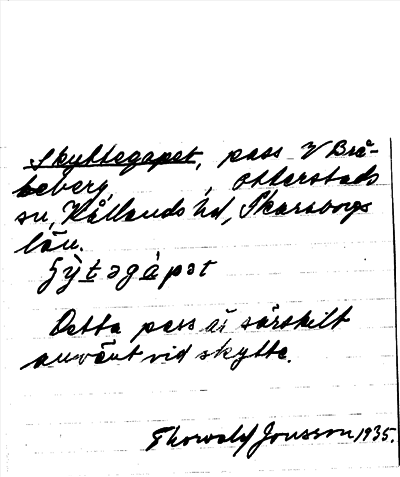 Skyttegapet, pass V Brå-
beberg, Otterstads
sn, Kållands hd, Skaraborgs
län.
Detta pass är särskilt
använt vid skytte.
Thorvald Jonsson 1935.